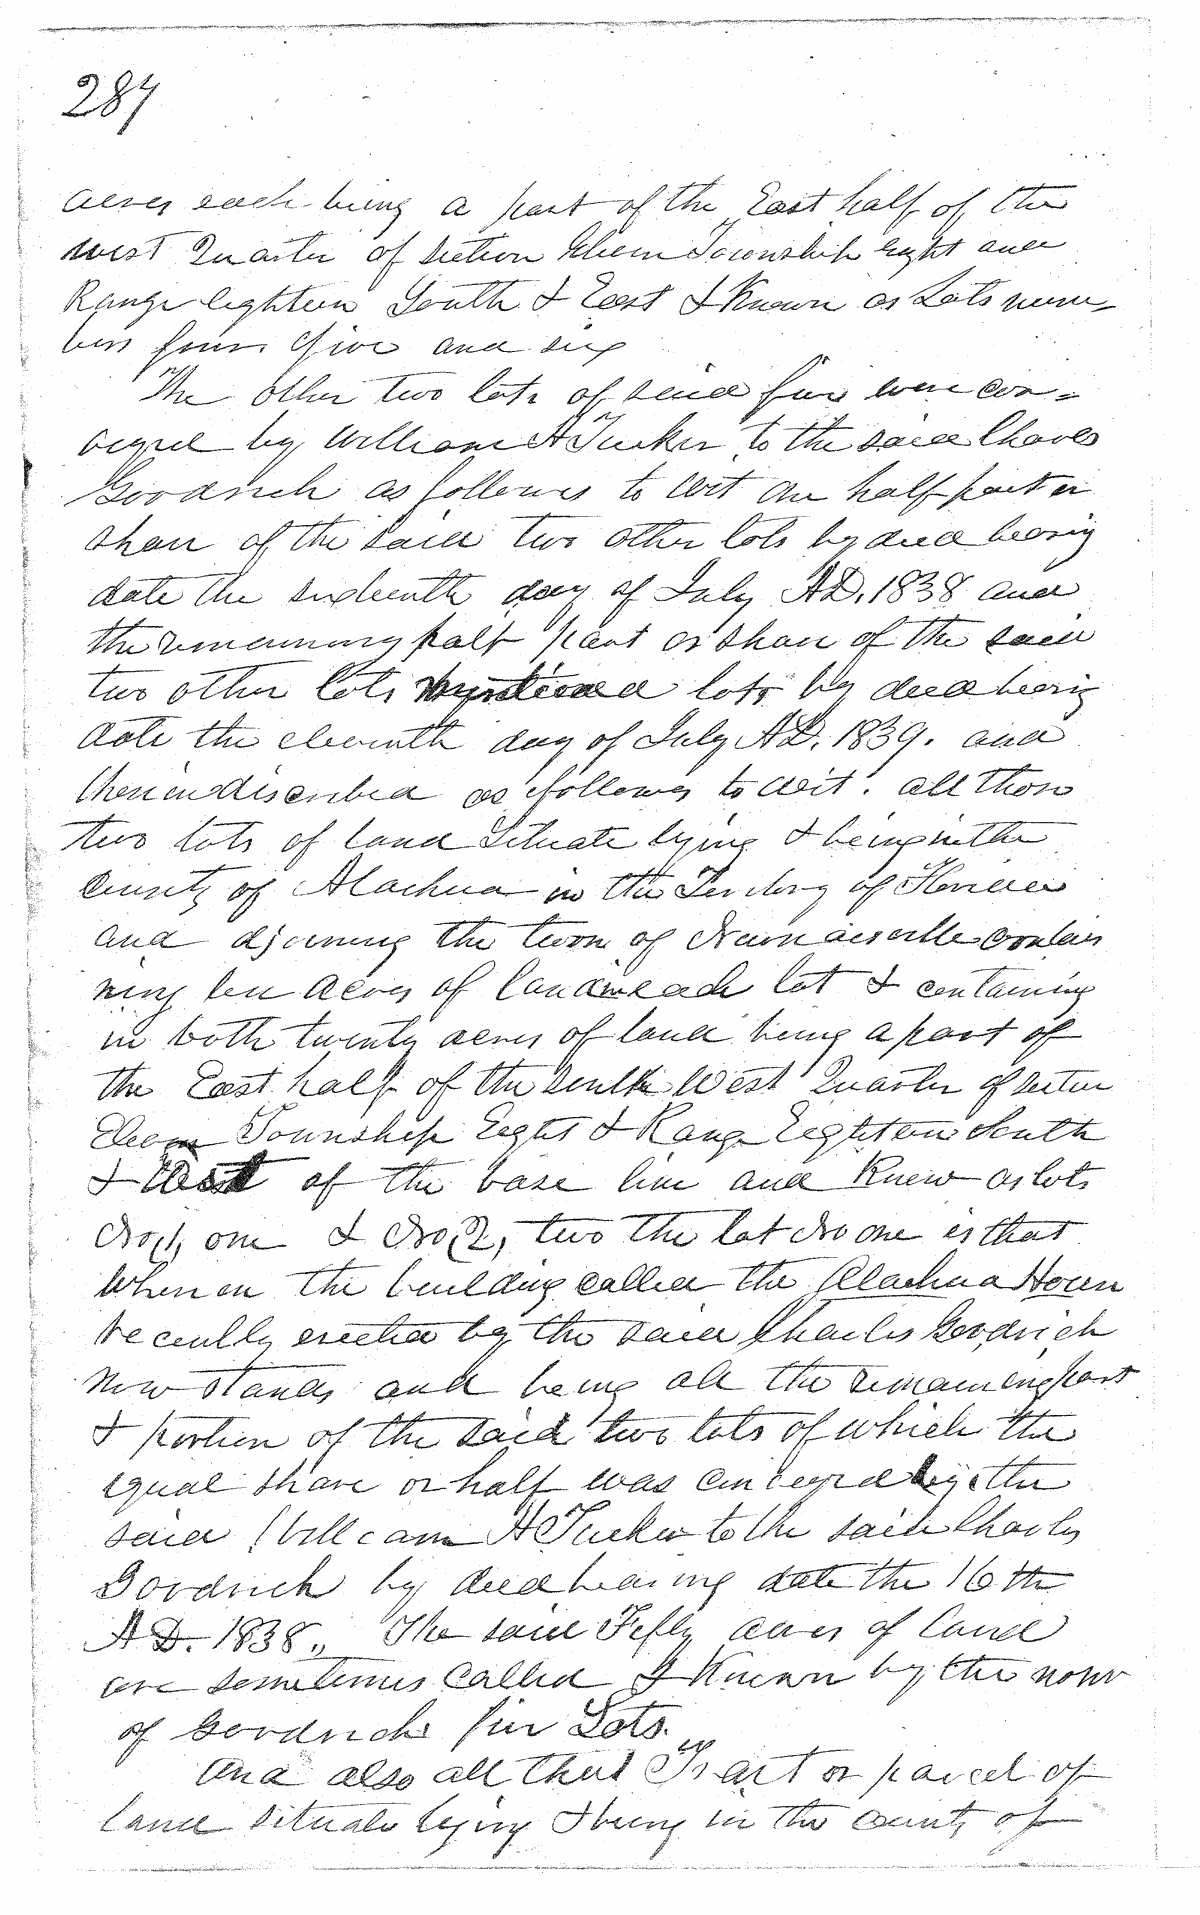 287
acres each being a part of the East half of the
west Quarter of section Eleven Township eight and
Range eighteen South & East & Known as Lots num-
bers four five and six
The other two lots of said five were con-
veyed by William A Tucker to the said Charles
Goodrich as follows to wit one half part or
share of the said two other lots by deed bearing
date the sixteenth day of July AD. 1838 and
the remaining half part or share of the said
two other lots lots by deed bearing
date the eleventh day of July AD. 1839. and
therein discribed as follows to wit. all those
two lots of land Situate lying & being in the
County of Alachua in the Territory of Florida
and djoining the town of Newnansville contai
ning ten acres of land in each lot & containing
in both twenty acres of land being a part of
the East half of the South West Quarter of section
Eleven Township Eight & Range Eighteen South
& East of the base line and Knew as lots
No 1, one & No 2, two the lot No one is that
wherein the building called the Alachua House
recently erected by the said Charles Goodrich
now stands and being all the remaining part
& portion of the said two lots of which the
equal share or half was conveyed by the
said William A Tucker to the said Charles
Goodrich by deed bearing date the 16th
AD. 1838., The said Fifty acres of land
are sometimes called & Known by the name
of Goodrichs five Lots.
And also all that Tract or parcel of
land situate lying & being in the county of